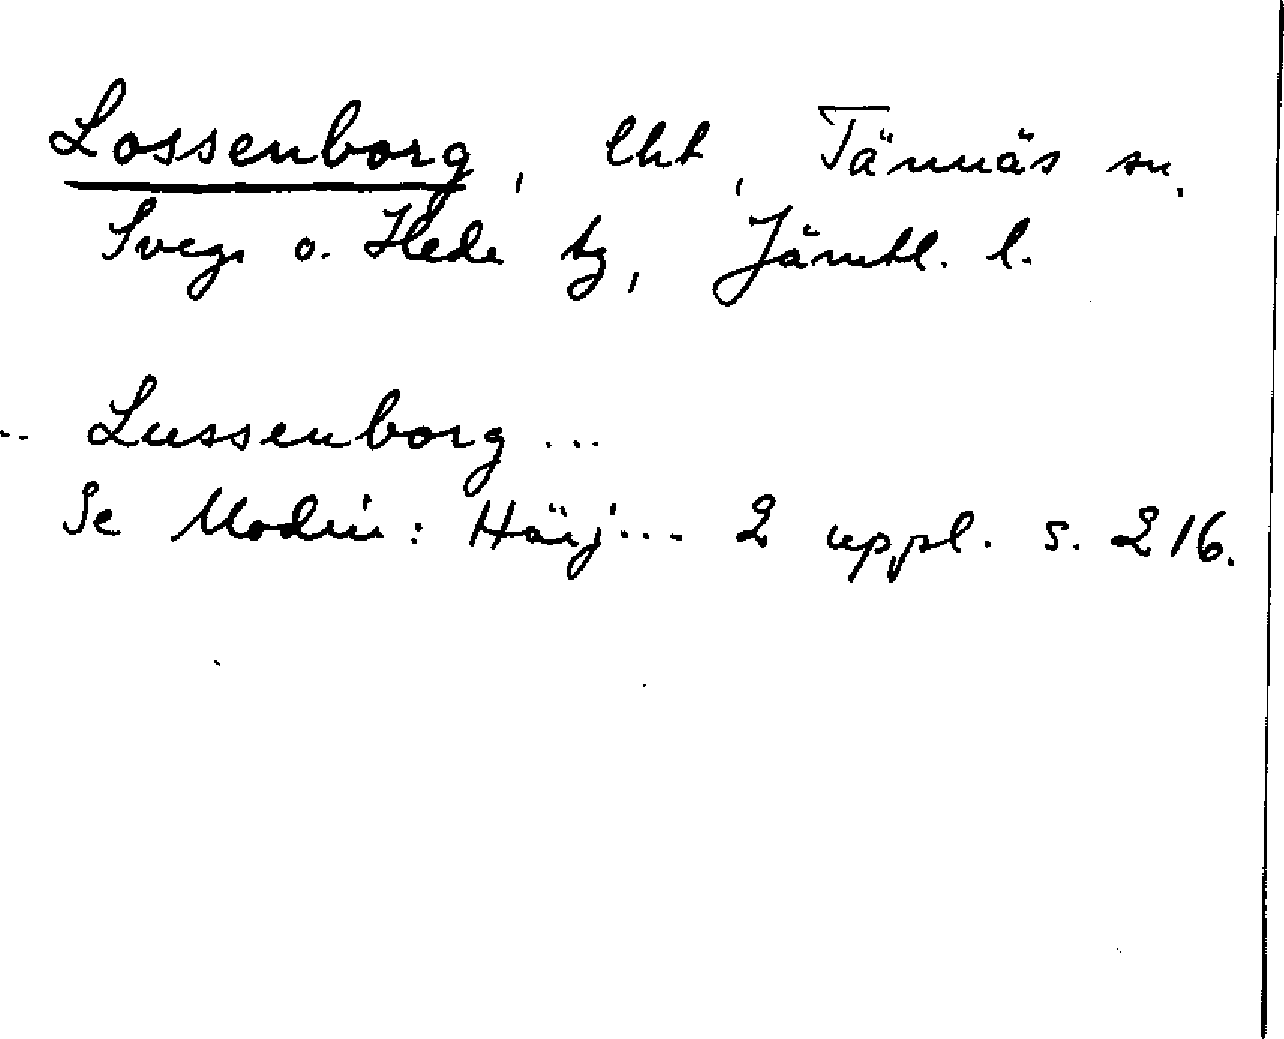 Lossenborg, lht, Tännäs sn,
Svegs o. Hede tg, Jämtl. l.
... Lussenborg ...
Se Modin: Härj... 2 uppl. s. 216.